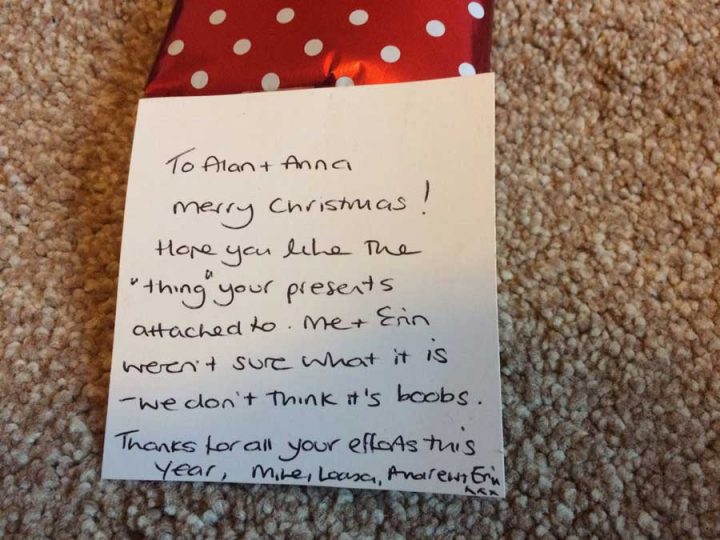 To Alan + Anna
Merry Christmas!
Hope you like the
"thing" your presents
attached to. Me + Erin
weren't sure what it is
- we don't think it's boobs.
Thanks for all your efforts this
year, Mike, Louisa, Andrew + Erin
xxx